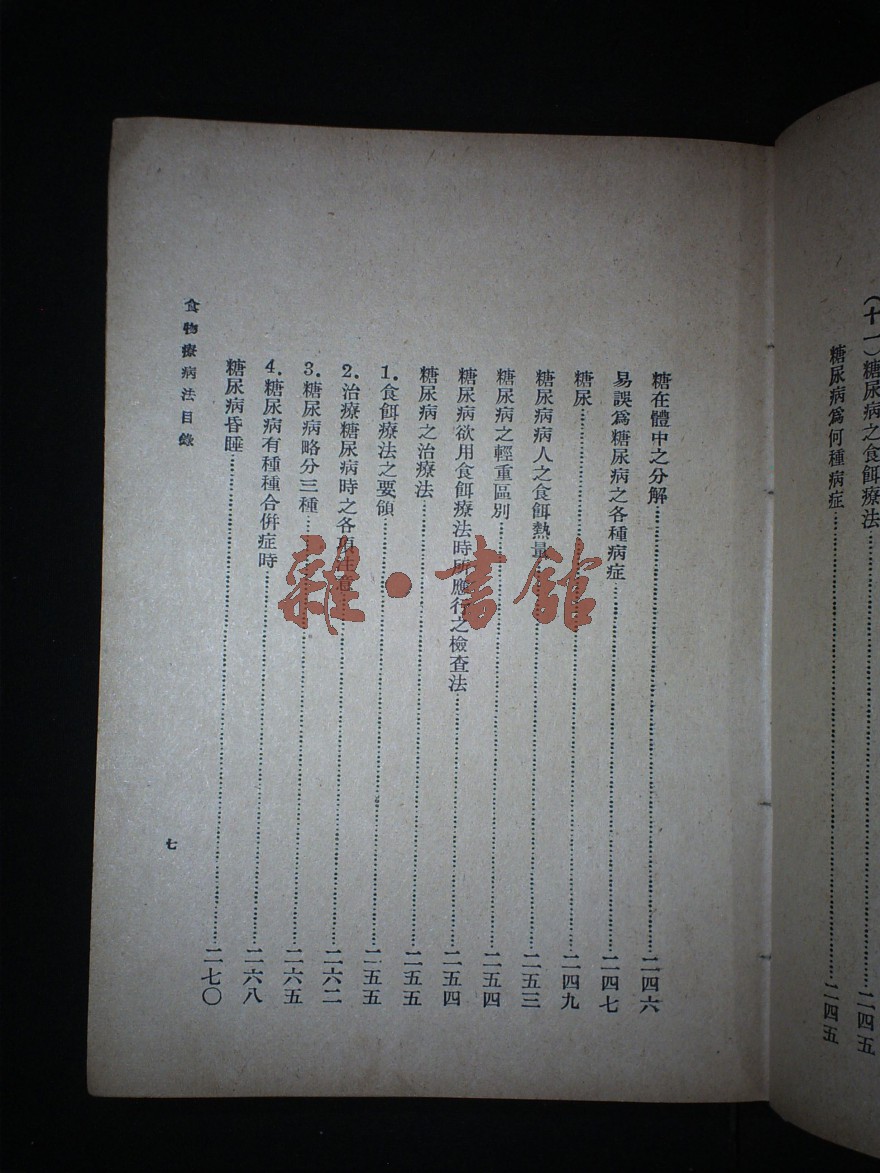 (十一)糖尿病之食餌療法……二四五
糖尿病爲何種病症……二四五
糖在體中之分解……二四六
易誤爲糖尿病之各種病症……二四七
糖尿……二四九
糖尿病病人之食餌熱量……二五三
糖尿病之輕重區別……二五四
糖尿病欲用食餌療法時所應行之檢查法……二五四
糖尿病之治療法……二五五
1.食餌療法之要領……二五五
2.治療糖尿病時之各項注意……二六二
3.糖尿病略分三種……二六五
4.糖尿病有種種合併症時……二六八
糖尿病昏睡……二七〇
食物療病法目錄
七
雜·書館